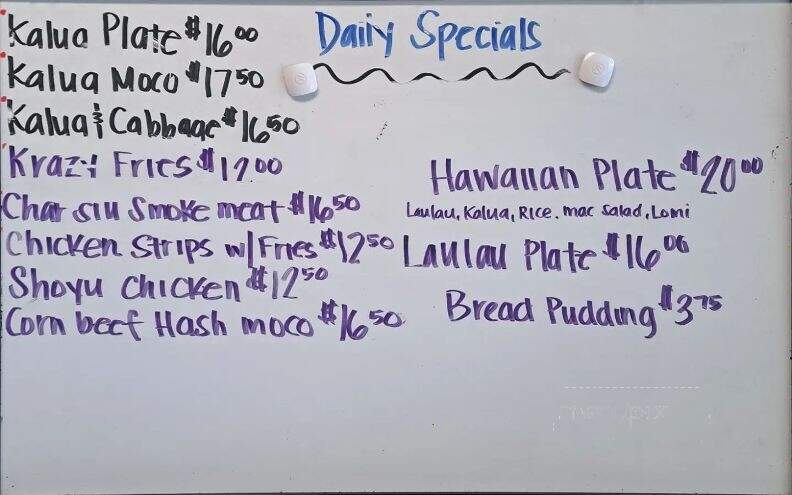 Daily Specials
Kalua Plate $16.00
Kalua Moco $17.50
Kalua & Cabbage $16.50
Krazy Fries $12.00
Char siu Smoke meat $16.50
Chicken Strips w/ Fries $12.50
Shoyu Chicken $12.50
Corn beef Hash moco $16.50
Hawaiian Plate $20.00
Laulau, Kalua, Rice. mac salad, Lomi
Laulau Plate $16.00
Bread Pudding $3.75